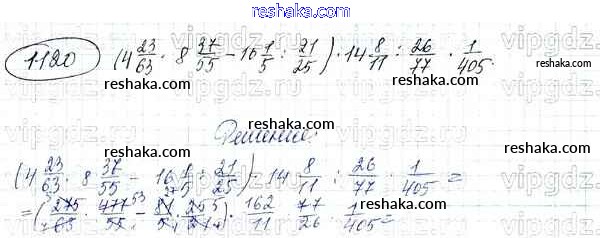 reshaka.com
1120 (4 23/63 · 8 37/55 - 16 1/5 : 21/25) · 14 8/11 : 26/77 · 1/405.
reshaka.com reshaka.com
Решение:
reshaka.com reshaka.com
(4 23/63 · 8 37/55 - 16 1/5 : 21/25) · 14 8/11 : 26/77 · 1/405 =
= (275/63 · 477/55 - 81/5 · 25/21) · 162/11 · 77/26 · 1/405 =
reshaka.com